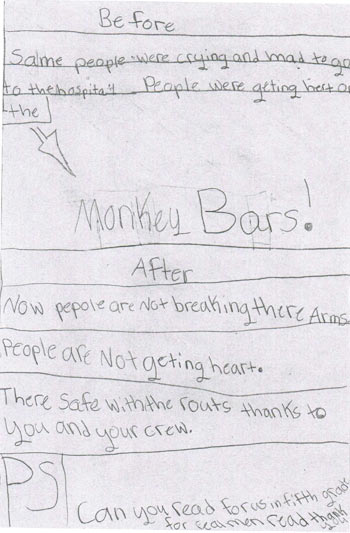 Before
Salme people were crying and mad to go
to the hospital People were getting hert on
the
Monkey Bars!
After
Now pepole are Not breaking there Arms.
People are Not geting heart.
There Safe with the routs thanks to
you and your crew.
PS
Can you read for us in fifth grade
for read thank
you